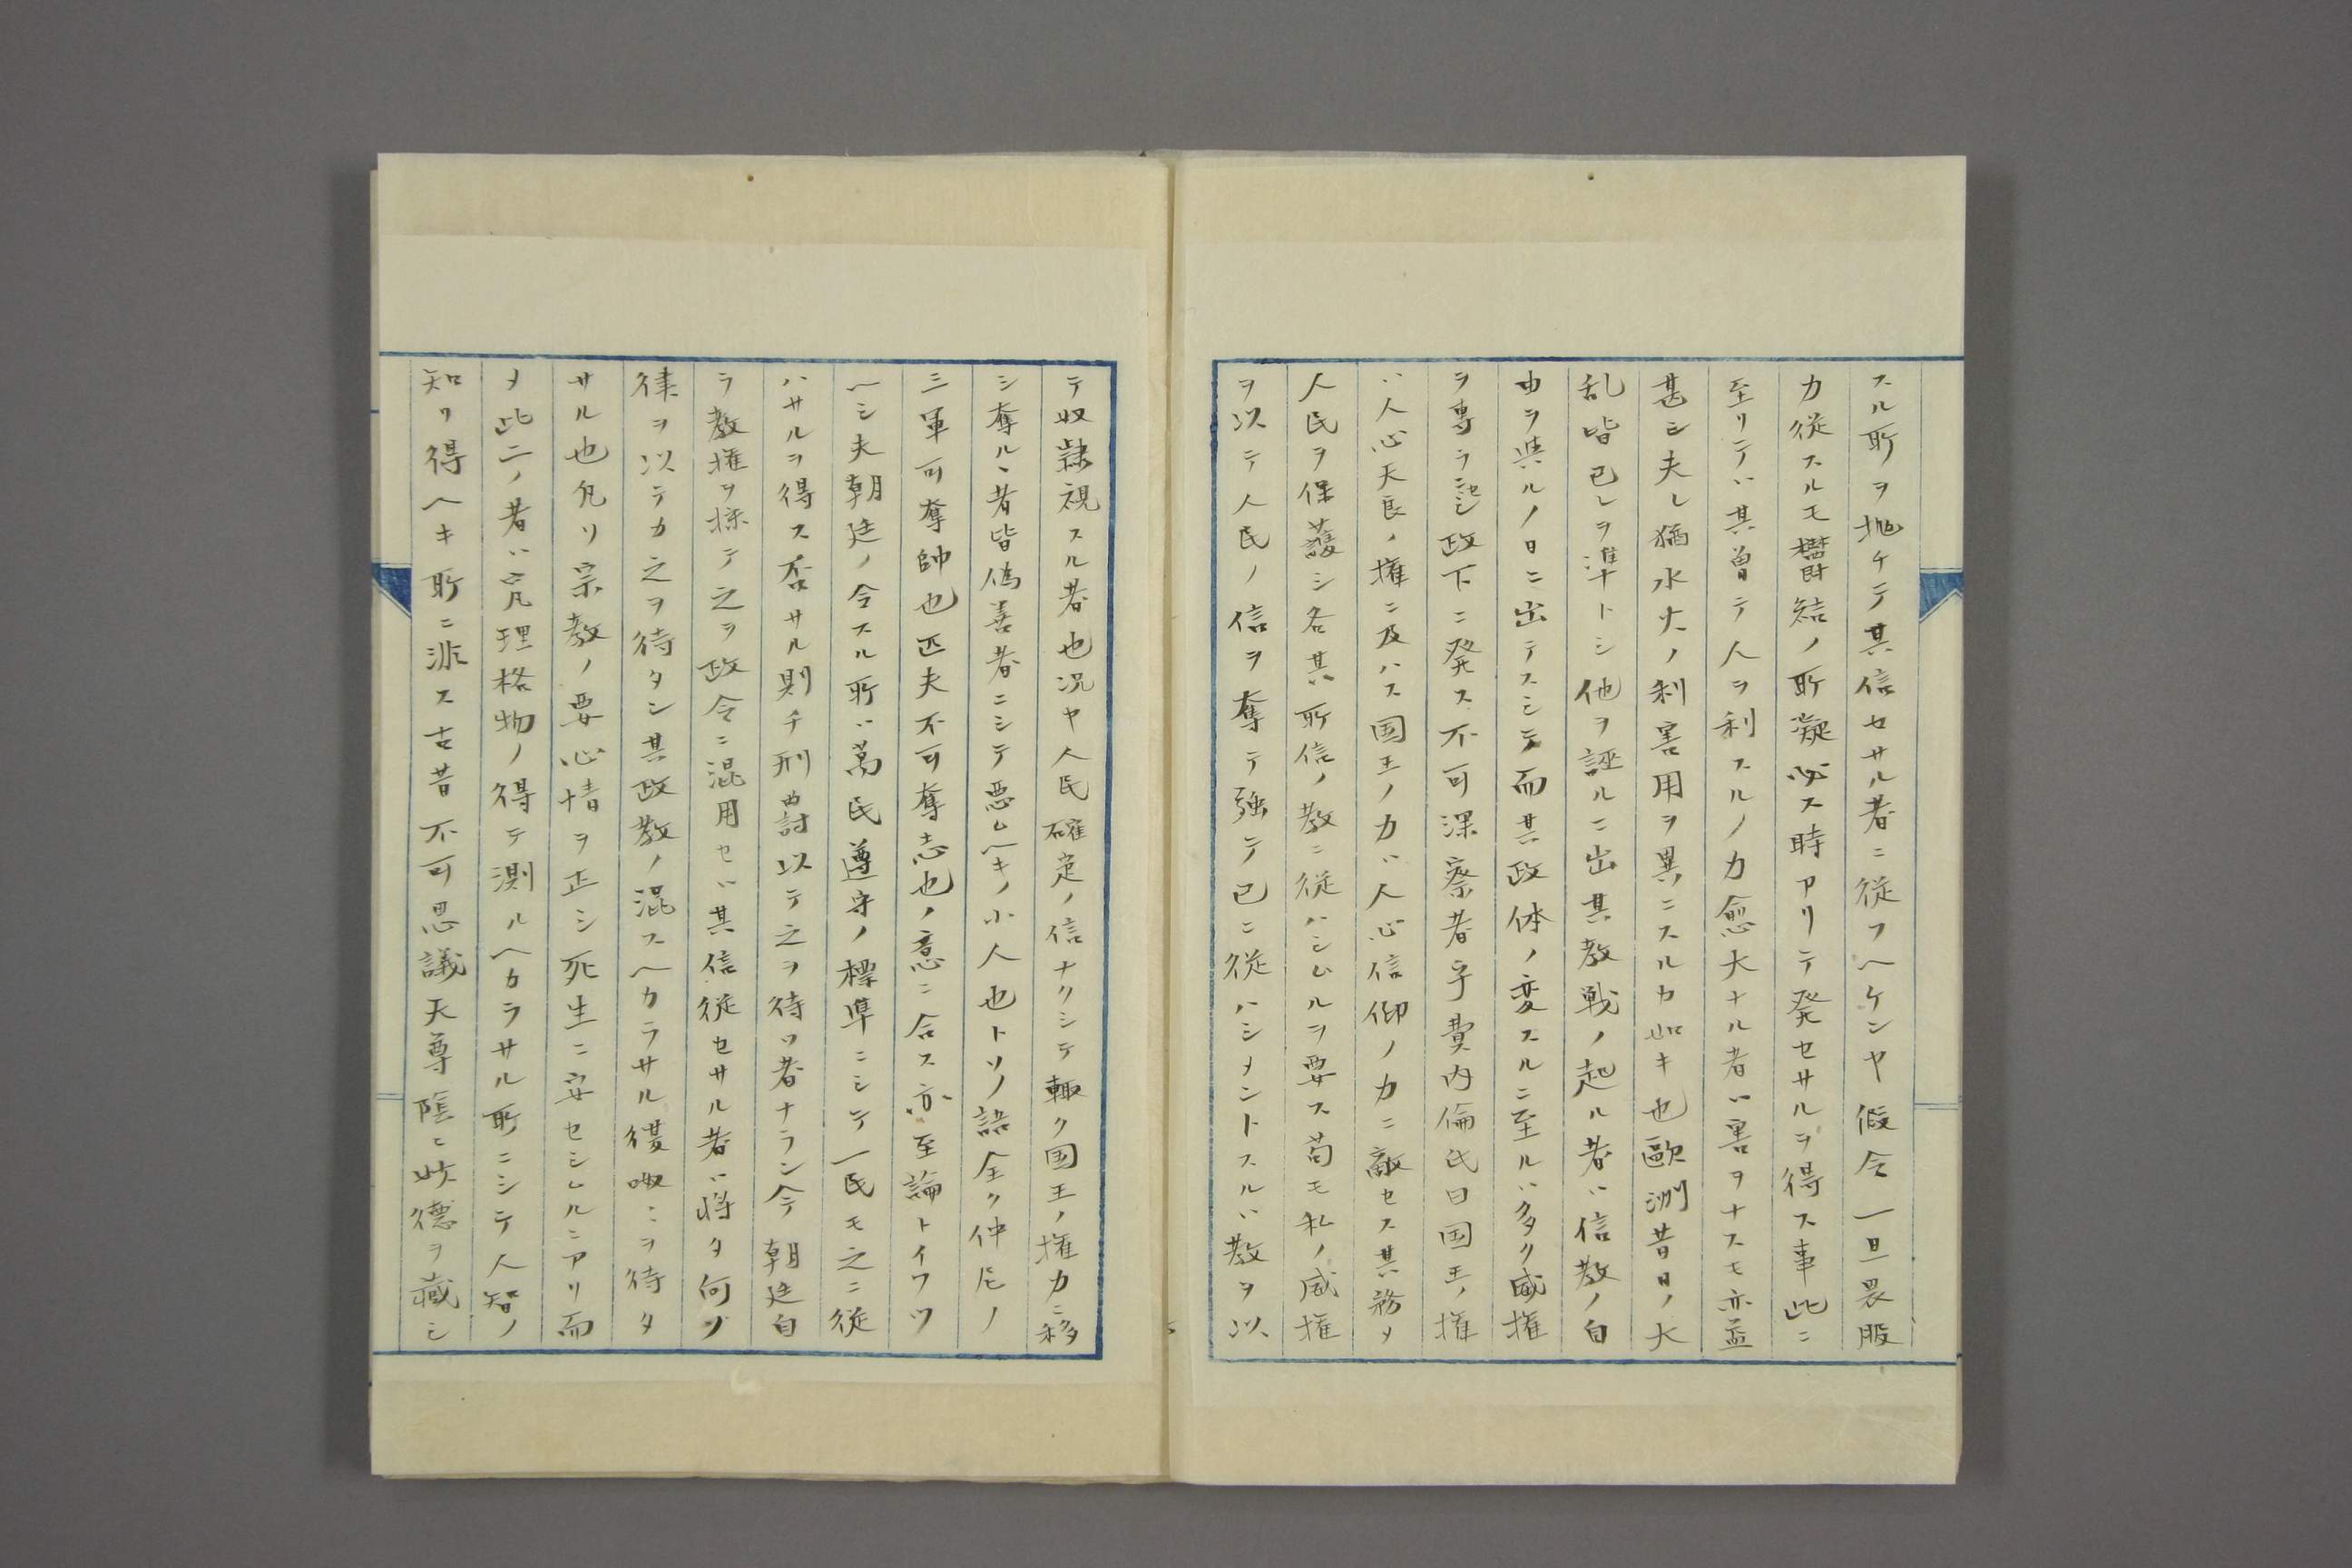 スル所ヲ抛チテ其信セサル者ニ従フヘケンヤ假令一旦畏服
力従スルモ欝結ノ所凝必ス時アリテ発セサルヲ得ス事此ニ
至リテハ其曽テ人ヲ利スルノ力愈大ナル者ハ害ヲナスモ亦益
甚シ夫レ猶水火ノ利害用ヲ異ニスルカ如キ也歐洲昔日ノ大
乱皆己レヲ準トシ他ヲ誣ルニ出其教戦ノ起ル者ハ信教ノ自
由ヲ與ルノ日ニ出テスシテ而其政体ノ変スルニ至ルハ多ク威権
ヲ専ラニセシ政下ニ発ス不可深察者乎費内倫氏曰国王ノ権
ハ人心天良ノ権ニ及ハス国王ノ力ハ人心信仰ノ力ニ敵セス其務メ
人民ヲ保護シ各其所信ノ教ニ従ハシムルヲ要ス苟モ私ノ威権
ヲ以テ人民ノ信ヲ奪テ強テ己ニ従ハシメントスルハ教ヲ以
テ奴隷視スル者也况ヤ人民確定ノ信ナクシテ輙ク国王ノ権力ニ移
シ奪ルヽ者皆偽善者ニシテ悪ムヘキノ小人也トソノ語全ク仲尼ノ
三軍可奪帥也匹夫不可奪志也ノ意ニ合ス亦至論トイフツ
ヘシ夫朝廷ノ令スル所ハ萬民遵守ノ標準ニシテ一民モ之ニ従
ハサルヲ得ス否サル則チ刑罰以テ之ヲ待ツ者ナラン今朝廷自
ラ教権ヲ操テ之ヲ政令ニ混用セハ其信従セサル者ハ将タ何ノ
律ヲ以テカ之ヲ待タン其政教ノ混スヘカラサル復呶々ヲ待タ
サル也凡リ宗教ノ要心情ヲ正シ死生ニ安セシムルニアリ而
メ此二ノ者ハ究理格物ノ得テ測ルヘカラサル所ニシテ人智ノ
知リ得ヘキ所ニ非ス古昔不可思議天尊陰ニ妙徳ヲ蔵シ